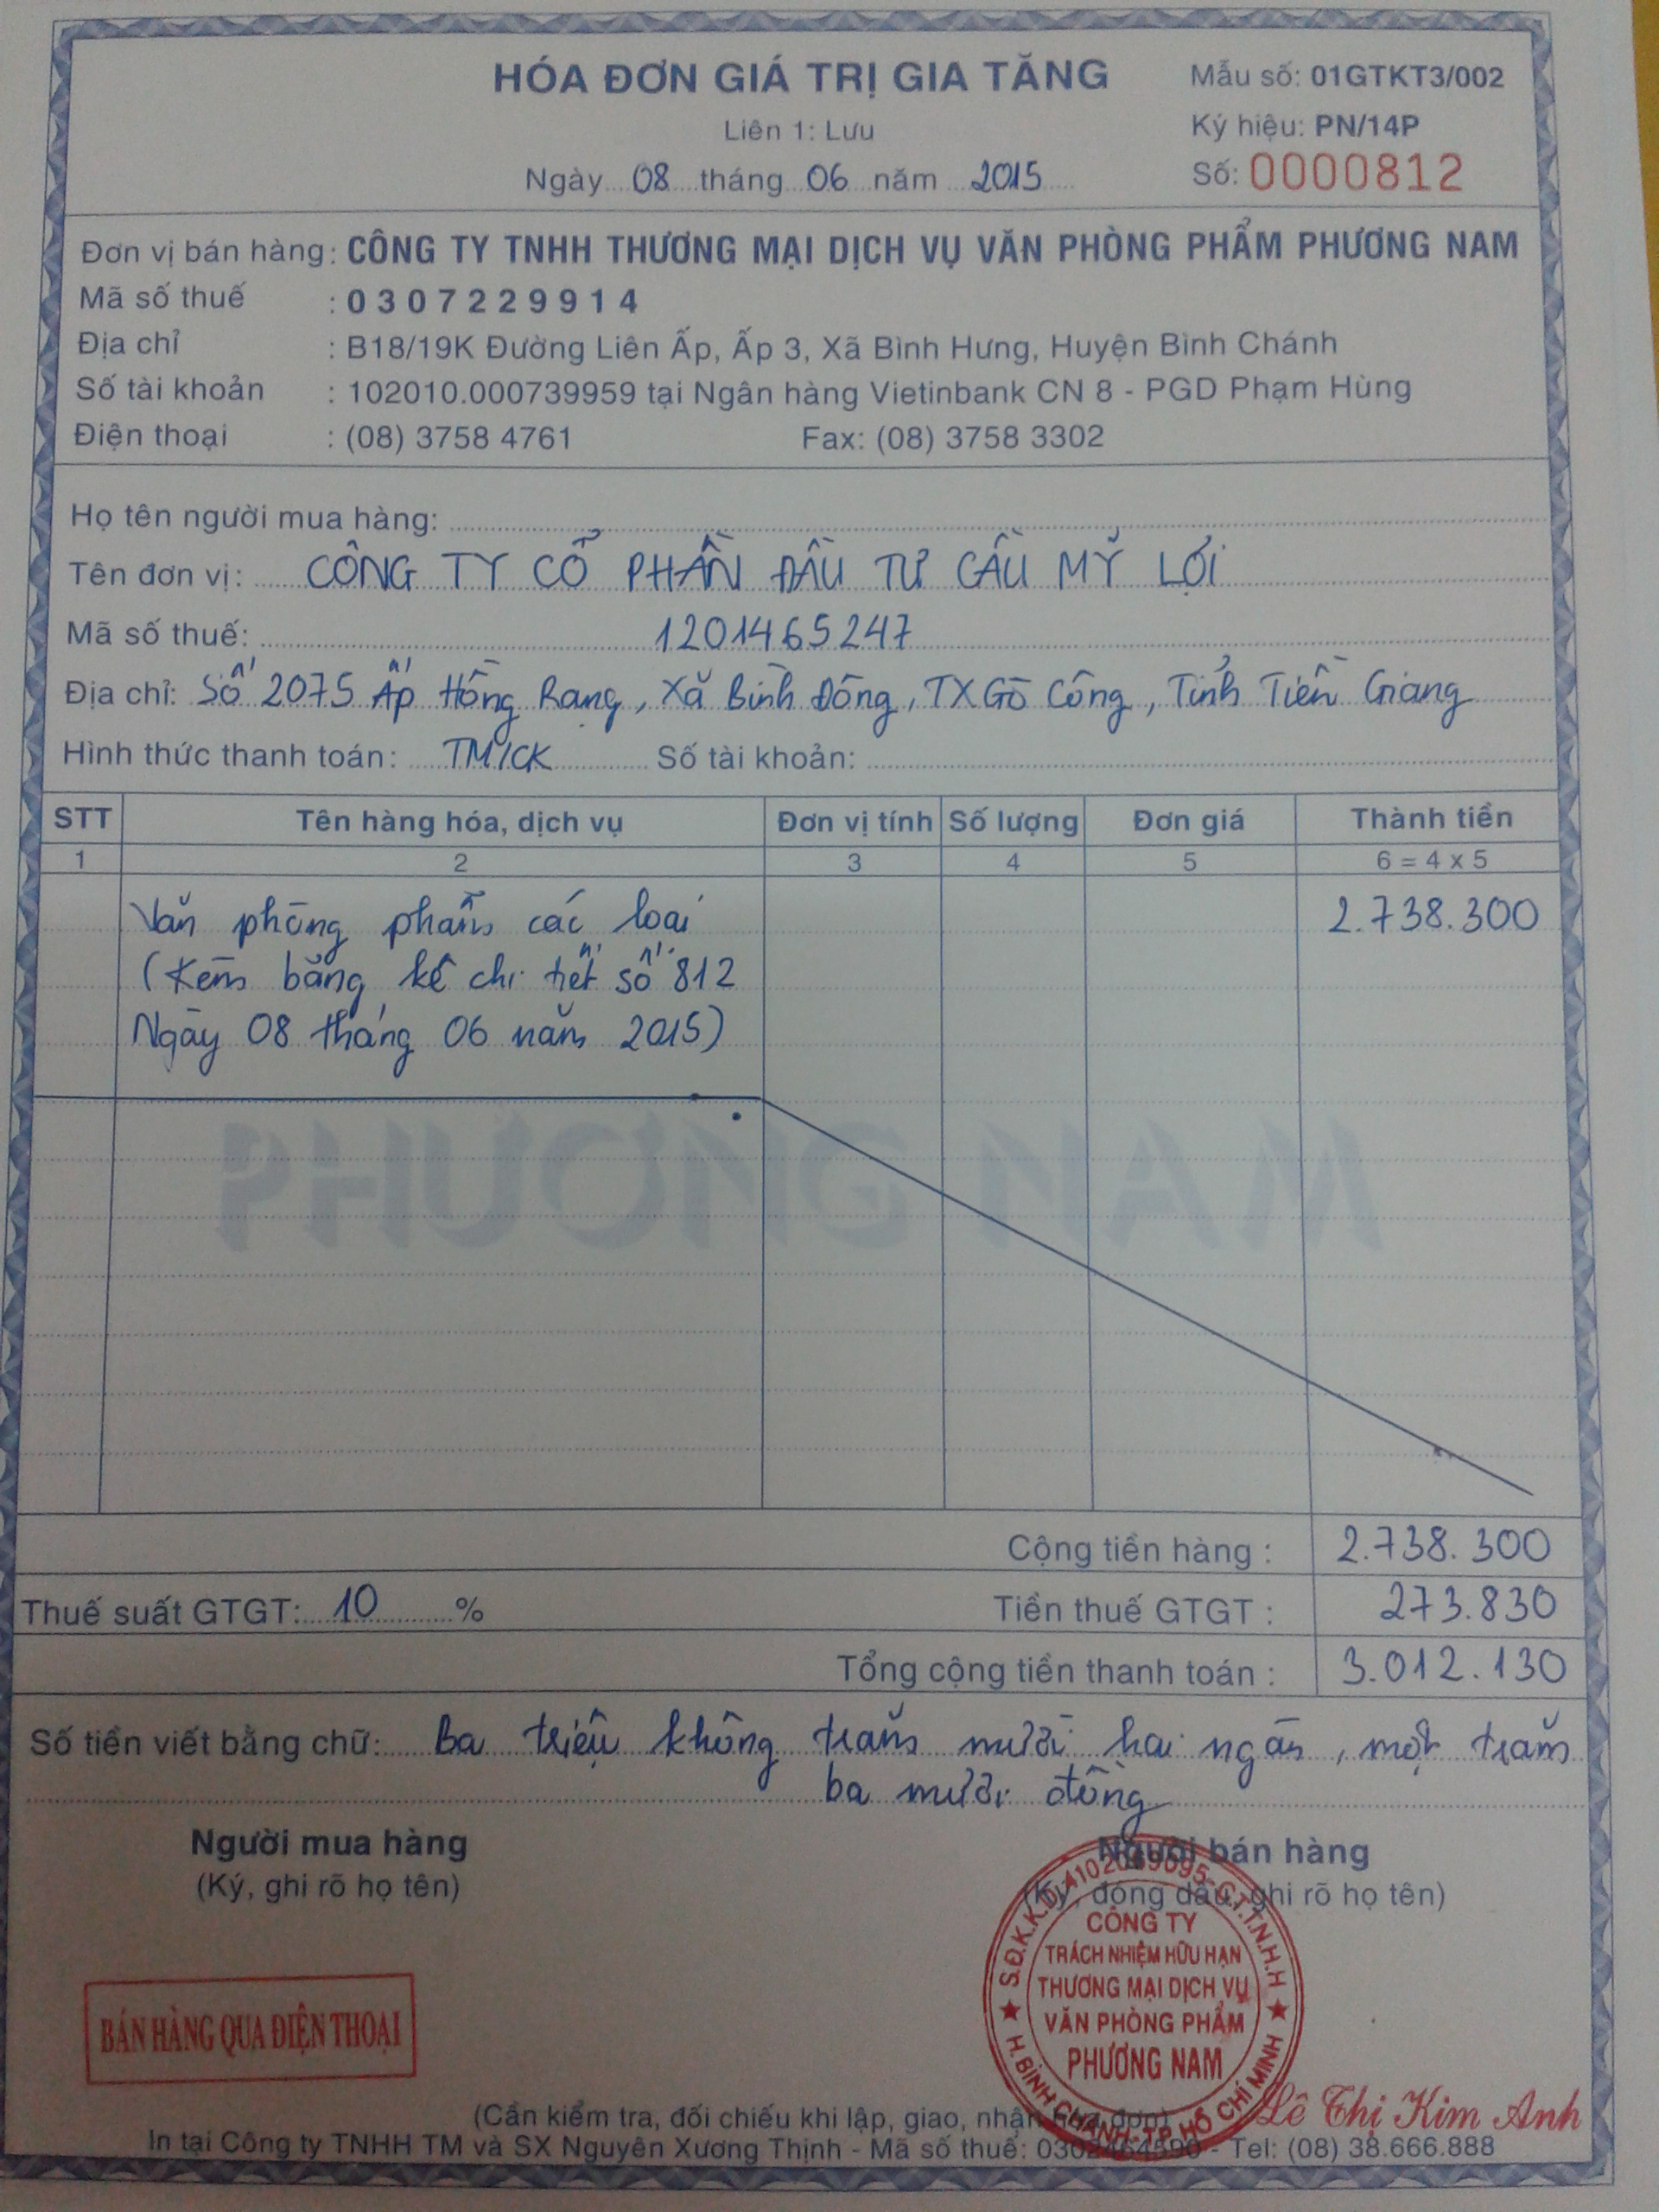 HÓA ĐƠN GIÁ TRỊ GIA TĂNG
Mẫu số: 01GTKT3/002
Liên 1: Lưu
Ký hiệu: PN/14P
Ngày 08 tháng 06 năm 2015
Số: 0000812
Đơn vị bán hàng: CÔNG TY TNHH THƯƠNG MẠI DỊCH VỤ VĂN PHÒNG PHẨM PHƯƠNG NAM
Mã số thuế : 0307229914
Địa chỉ : B18/19K Đường Liên Ấp, Ấp 3, Xã Bình Hưng, Huyện Bình Chánh
Số tài khoản : 102010.000739959 tại Ngân hàng Vietinbank CN 8 - PGD Phạm Hùng
Điện thoại : (08) 3758 4761 Fax: (08) 3758 3302
Họ tên người mua hàng:
Tên đơn vị: CÔNG TY CỔ PHẦN ĐẦU TƯ CẦU MỸ LỢI
Mã số thuế: 1201465247
Địa chỉ: Số 2075 Ấp Hồng Rạng, Xã Bình Đông, TX Gò Công, Tỉnh Tiền Giang
Hình thức thanh toán: TM/CK Số tài khoản:
STT Tên hàng hóa, dịch vụ Đơn vị tính Số lượng Đơn giá Thành tiền
1 2 3 4 5 6 = 4 x 5
Văn phòng phẩm các loại 2.738.300
(Kèm bảng kê chi tiết số 812
Ngày 08 tháng 06 năm 2015)
PHƯƠNG NAM
Cộng tiền hàng : 2.738.300
Thuế suất GTGT: 10 % Tiền thuế GTGT : 273.830
Tổng cộng tiền thanh toán : 3.012.130
Số tiền viết bằng chữ: Ba triệu không trăm mười hai ngàn, một trăm
ba mươi đồng
Người mua hàng
(Ký, ghi rõ họ tên)
Người bán hàng
(Ký, đóng dấu, ghi rõ họ tên)
BÁN HÀNG QUA ĐIỆN THOẠI
CÔNG TY
TRÁCH NHIỆM HỮU HẠN
THƯƠNG MẠI DỊCH VỤ
VĂN PHÒNG PHẨM
PHƯƠNG NAM
H.BÌNH CHÁNH-TP.HỒ CHÍ MINH
Lê Thị Kim Anh
(Cần kiểm tra, đối chiếu khi lập, giao, nhận hóa đơn)
In tại Công ty TNHH TM và SX Nguyên Xương Thịnh - Mã số thuế: 0302464590 - Tel: (08) 38.666.888